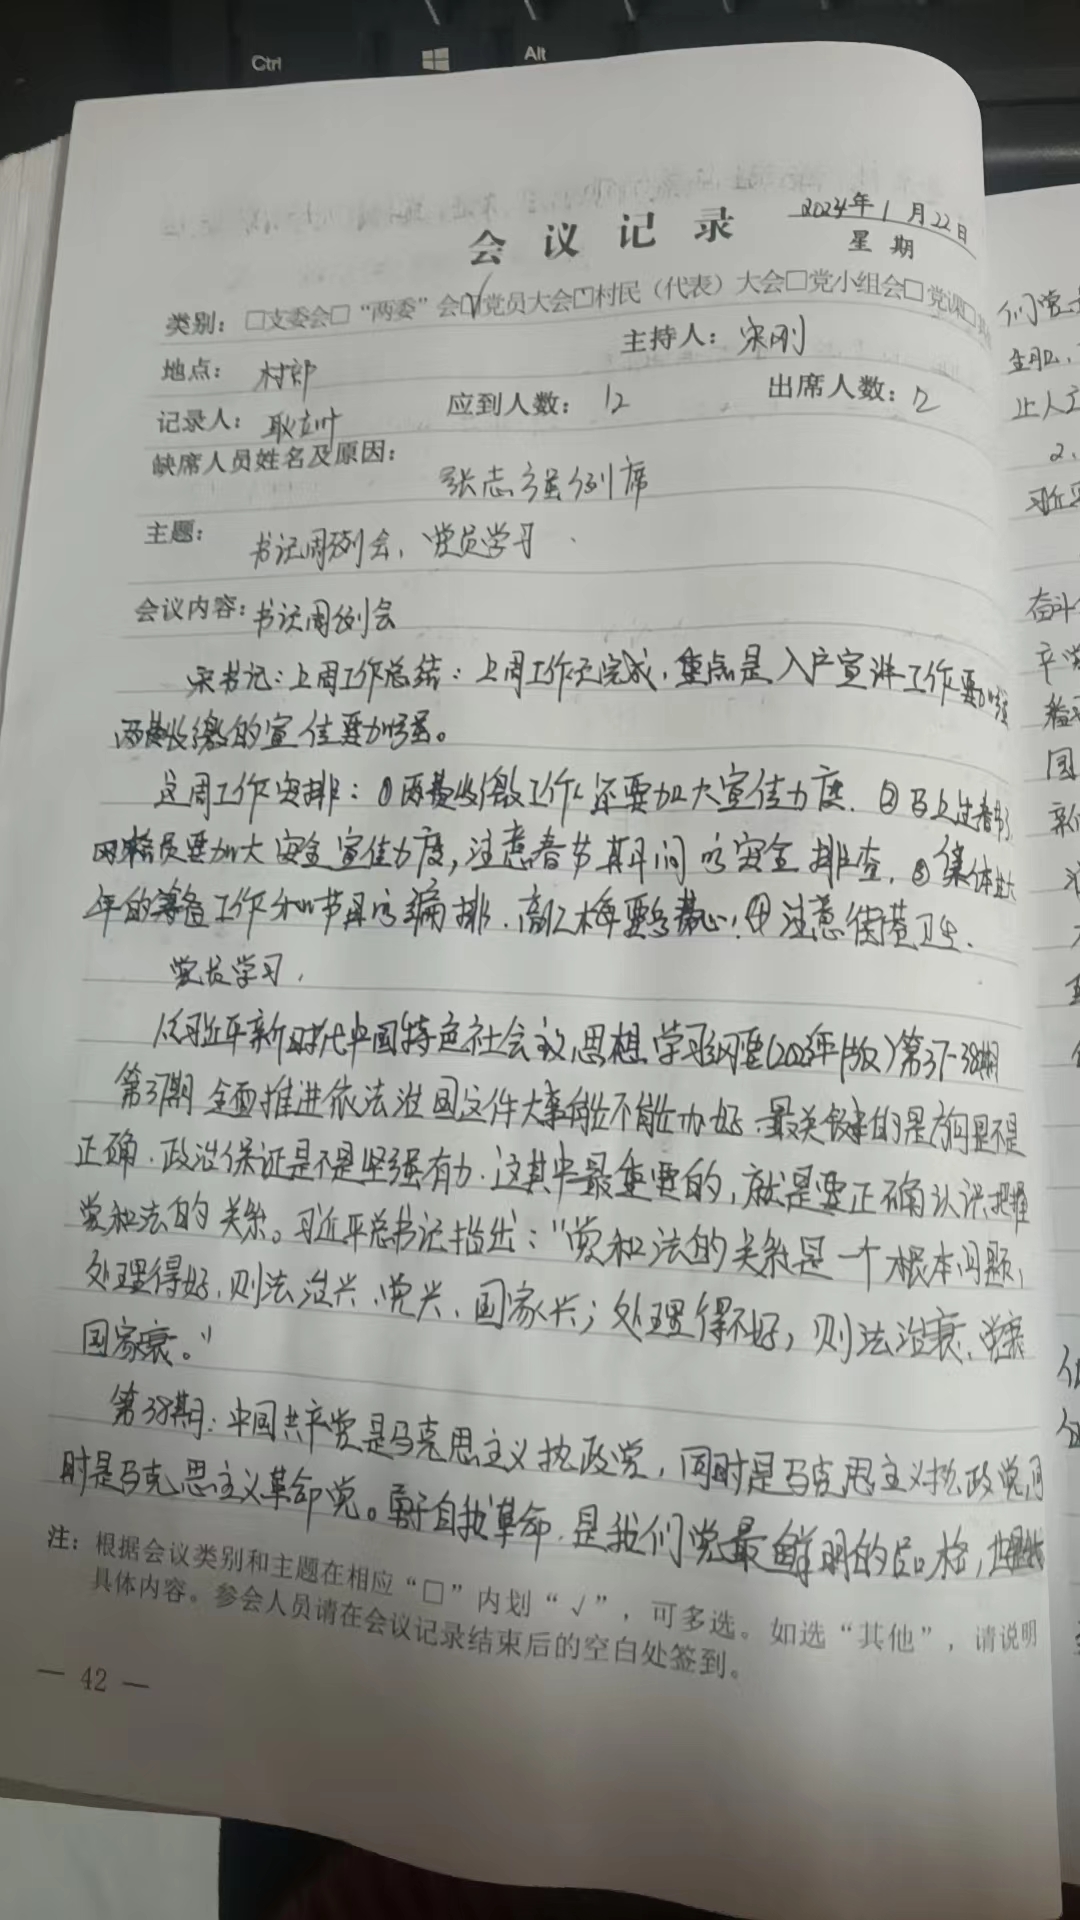 Ctrl
Alt
2024年1月22日
会议记录
星期
类别：□支委会□“两委”会☑党员大会□村民（代表）大会□党小组会□党课□其
地点：村部
主持人：宋刚
记录人：耿立叶
应到人数：12
出席人数：12
缺席人员姓名及原因：
张志强列席
主题：书记周例会、党员学习
会议内容：书记周例会
宋书记：上周工作总结：上周工作已完成，重点是入户宣讲工作要加强
两费收缴的宣传要加强。
这周工作安排：①两费收缴工作还要加大宣传力度．②马上过春节，
网格员要加大安全宣传力度，注意春节期间的安全排查．③集体过大
年的筹备工作和节目的编排．高红梅要多费心！④注意街巷卫生．
党员学习．
《习近平新时代中国特色社会主义思想学习纲要（2023年版）第37-38期
第37期 全面推进依法治国这件大事能不能办好 最关键的是方向是不是
正确．政治保证是不是坚强有力．这其中最重要的，就是要正确认识把握
党和法的关系。习近平总书记指出：“党和法的关系是一个根本问题，
处理得好，则法治兴、党兴、国家兴；处理得不好，则法治衰、党衰
国家衰。”
第38期：中国共产党是马克思主义执政党，同时是马克思主义执政党,同
时是马克思主义革命党。勇于自我革命．是我们党最鲜明的品格，也是我
注：根据会议类别和主题在相应“□”内划“√”，可多选。如选“其他”，请说明
具体内容。参会人员请在会议记录结束后的空白处签到。
— 42 —
们党
止人
2、
习近平
奋斗
国